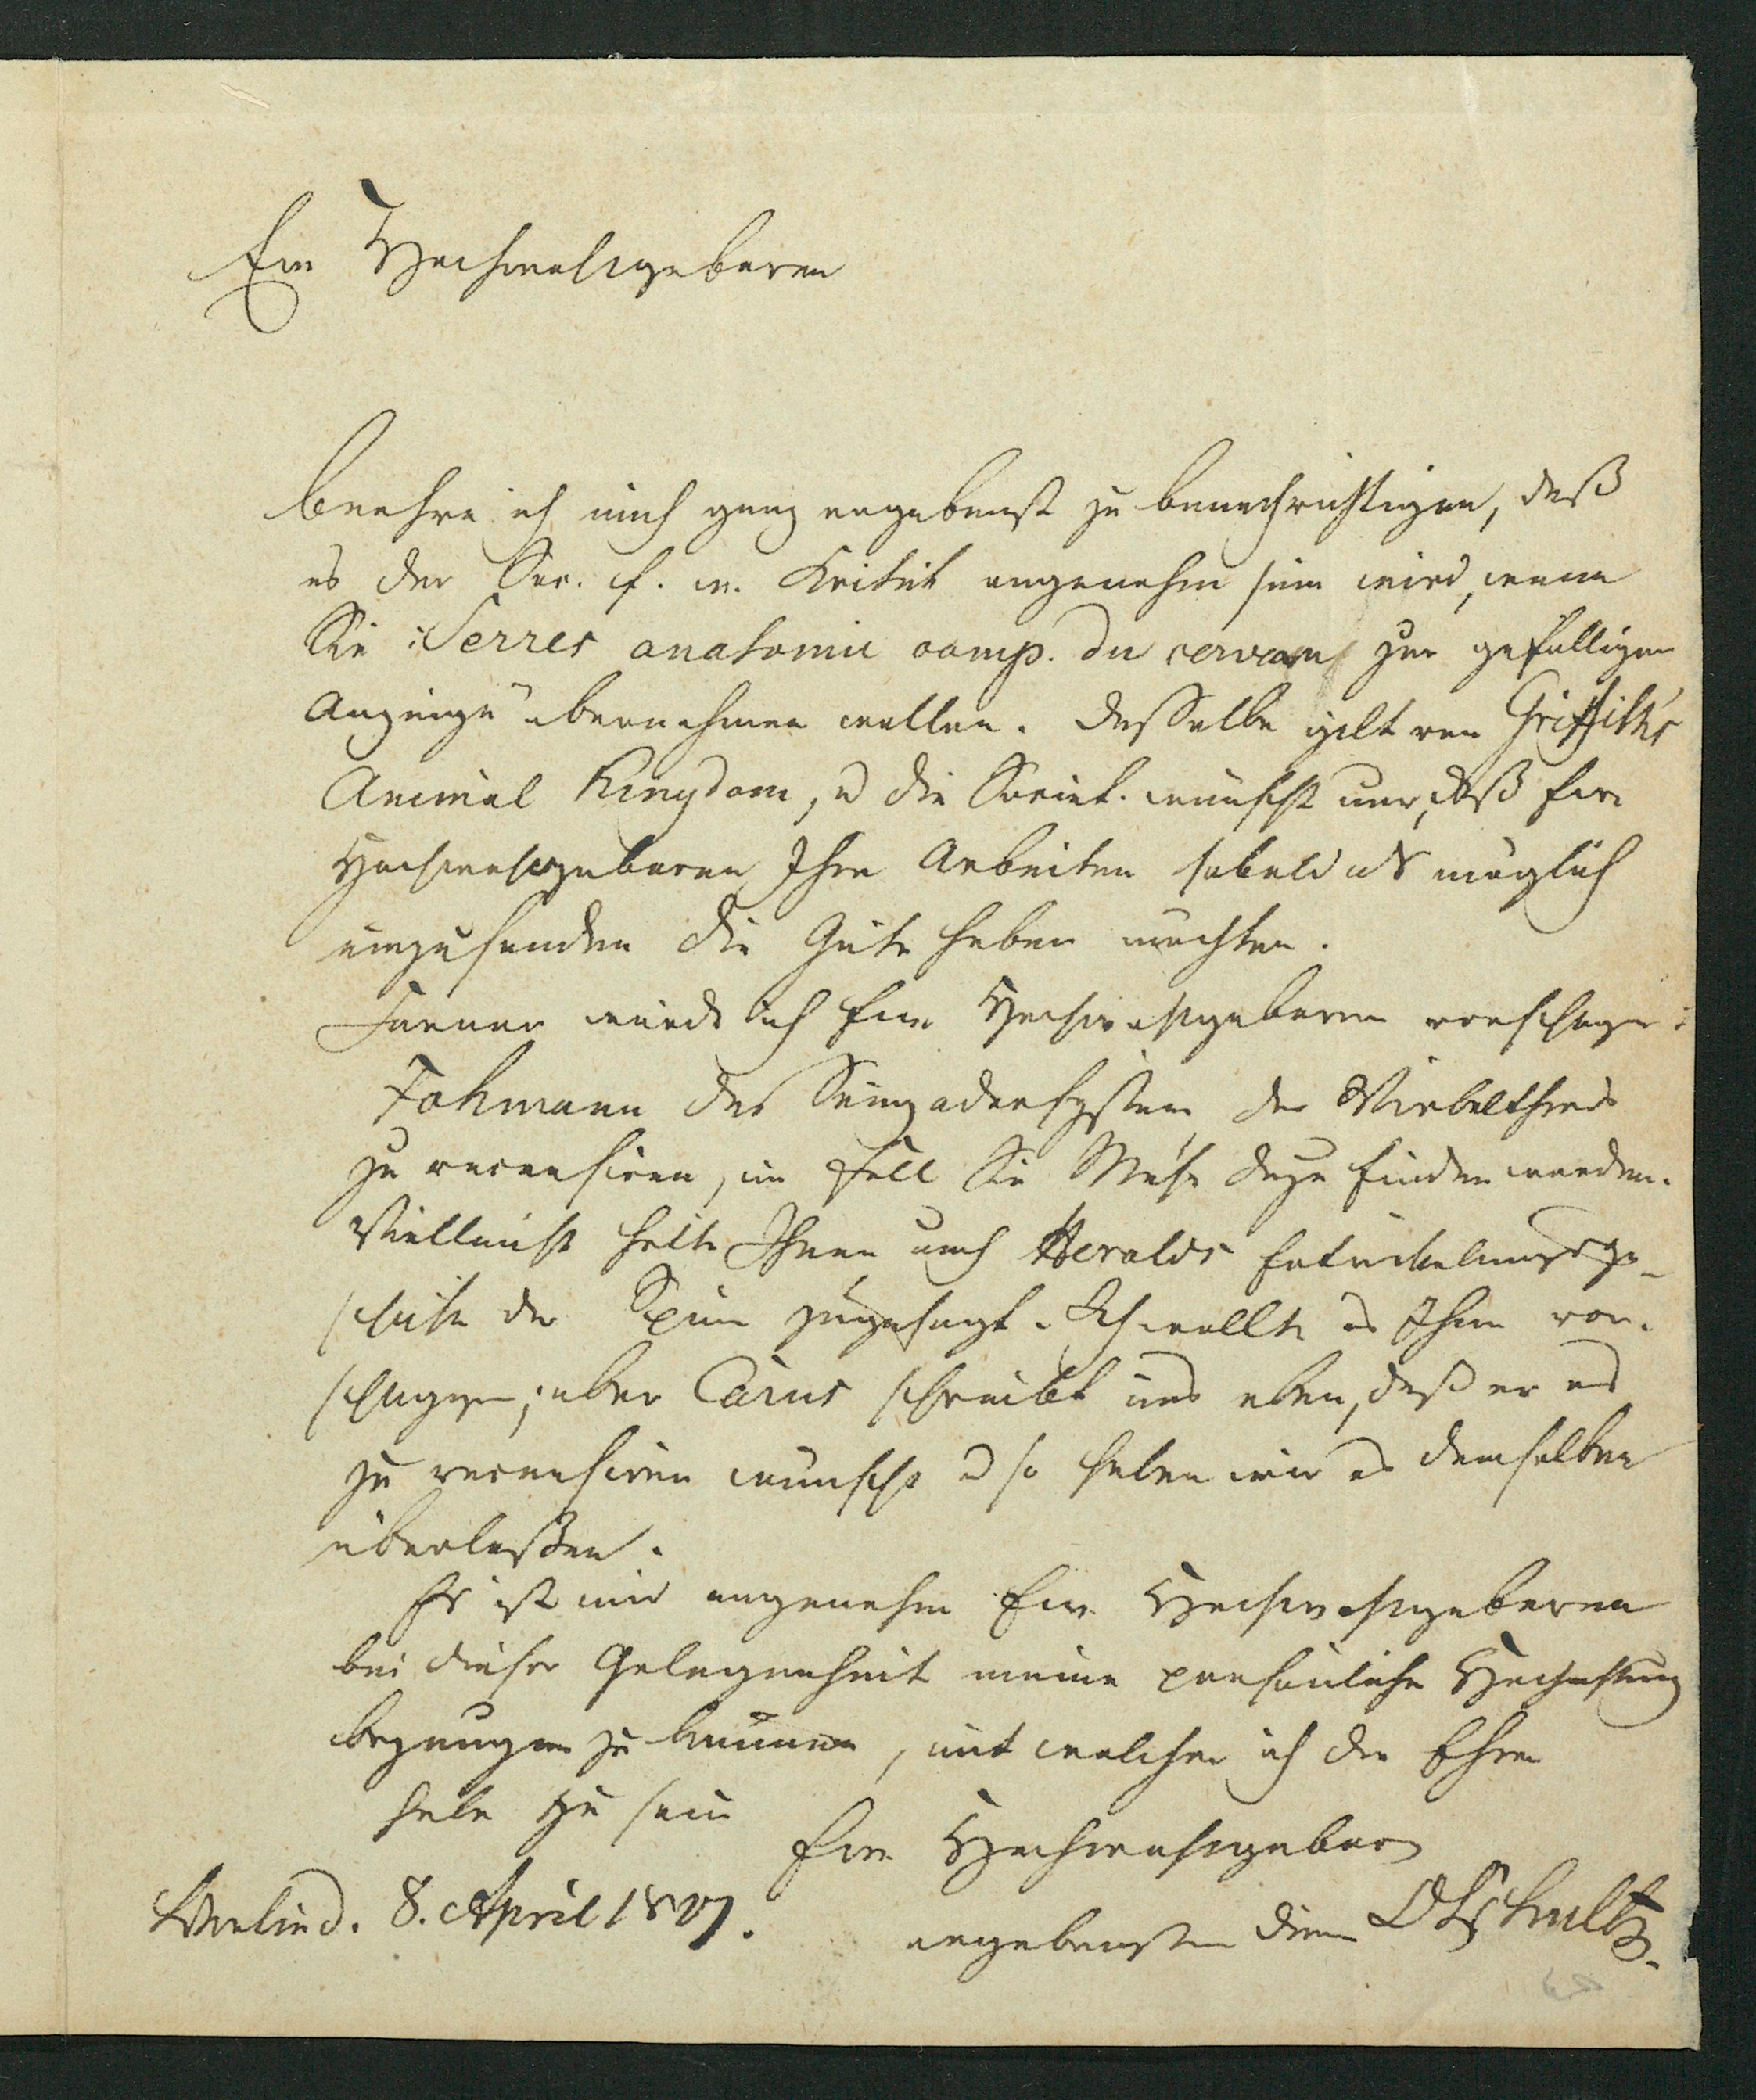 Ew Hochwohlgeboren
beehre ich mich ganz ergebenst zu benachrichtigen, daß
es der Soc. f. w. Kritik angenehm sein wird, wenn
Sie: Serres anatomie comp. du cerveau zur gefälligen
Anzeige übernehmen wollen. Dasselbe gilt von Griffith's
Animal Kingdom, u die Societ. wünscht nur, daß Ew.
Hochwohlgeboren Ihre Arbeiten sobald als möglich
einzusenden die Güte haben möchten.
Ferner würde ich Ew Hochwohlgeboren vorschlagen:
Fohmann das Saugadersystem der Wirbelthiere
zu recensiren, im Fall Sie Muße dazu finden werden.
Vielleicht hätte Ihnen auch Herolds Entwickelungsge-
schichte der Spinne zugesagt. Ich wollte es Ihnen vor-
schlagen; aber Carus schreibt uns eben, daß er es
zu recensiren wünscht u so haben wir es demselben
überlassen.
Es ist mir angenehm Ew. Hochwohlgeboren
bei dieser Gelegenheit meine persönliche Hochachtung
bezeugen zu können, mit welcher ich die Ehre
habe zu sein
Ew. Hochwohlgeboren
Berlin d. 8. April 1827.
ergebenster Diener CHSchultz.